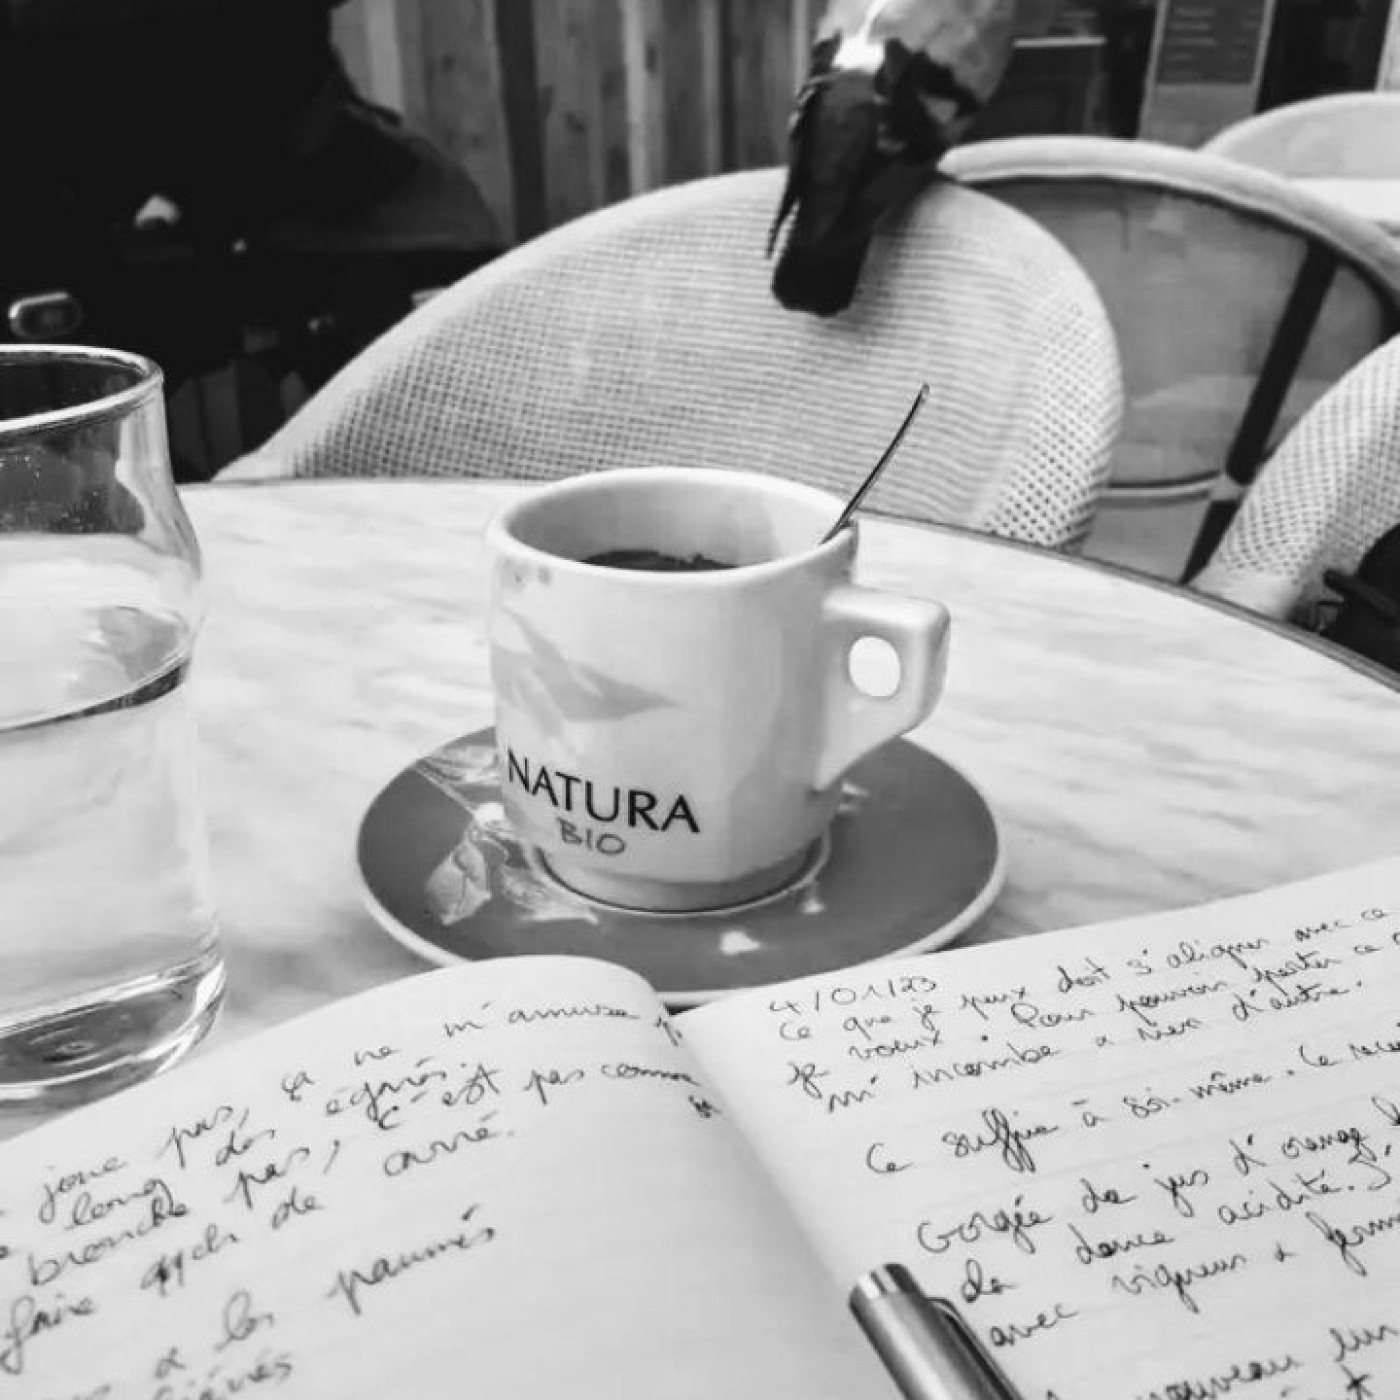 NATURA
BIO
m'amuse
joue pas, ça ne
long des égrés.
branche pas, c'est pas comme
faire qqch de carré.
& les paumés
4/01/23
Ce que je peux doit s'aligner avec ce
je veux. Pour pouvoir porter ce
m'incombe & rien d'autre.
Ce suffire à soi-même. Ce
Gorgée de jus d'orange
da douce acidité. J'
avec vigueur & ferm
nouveau